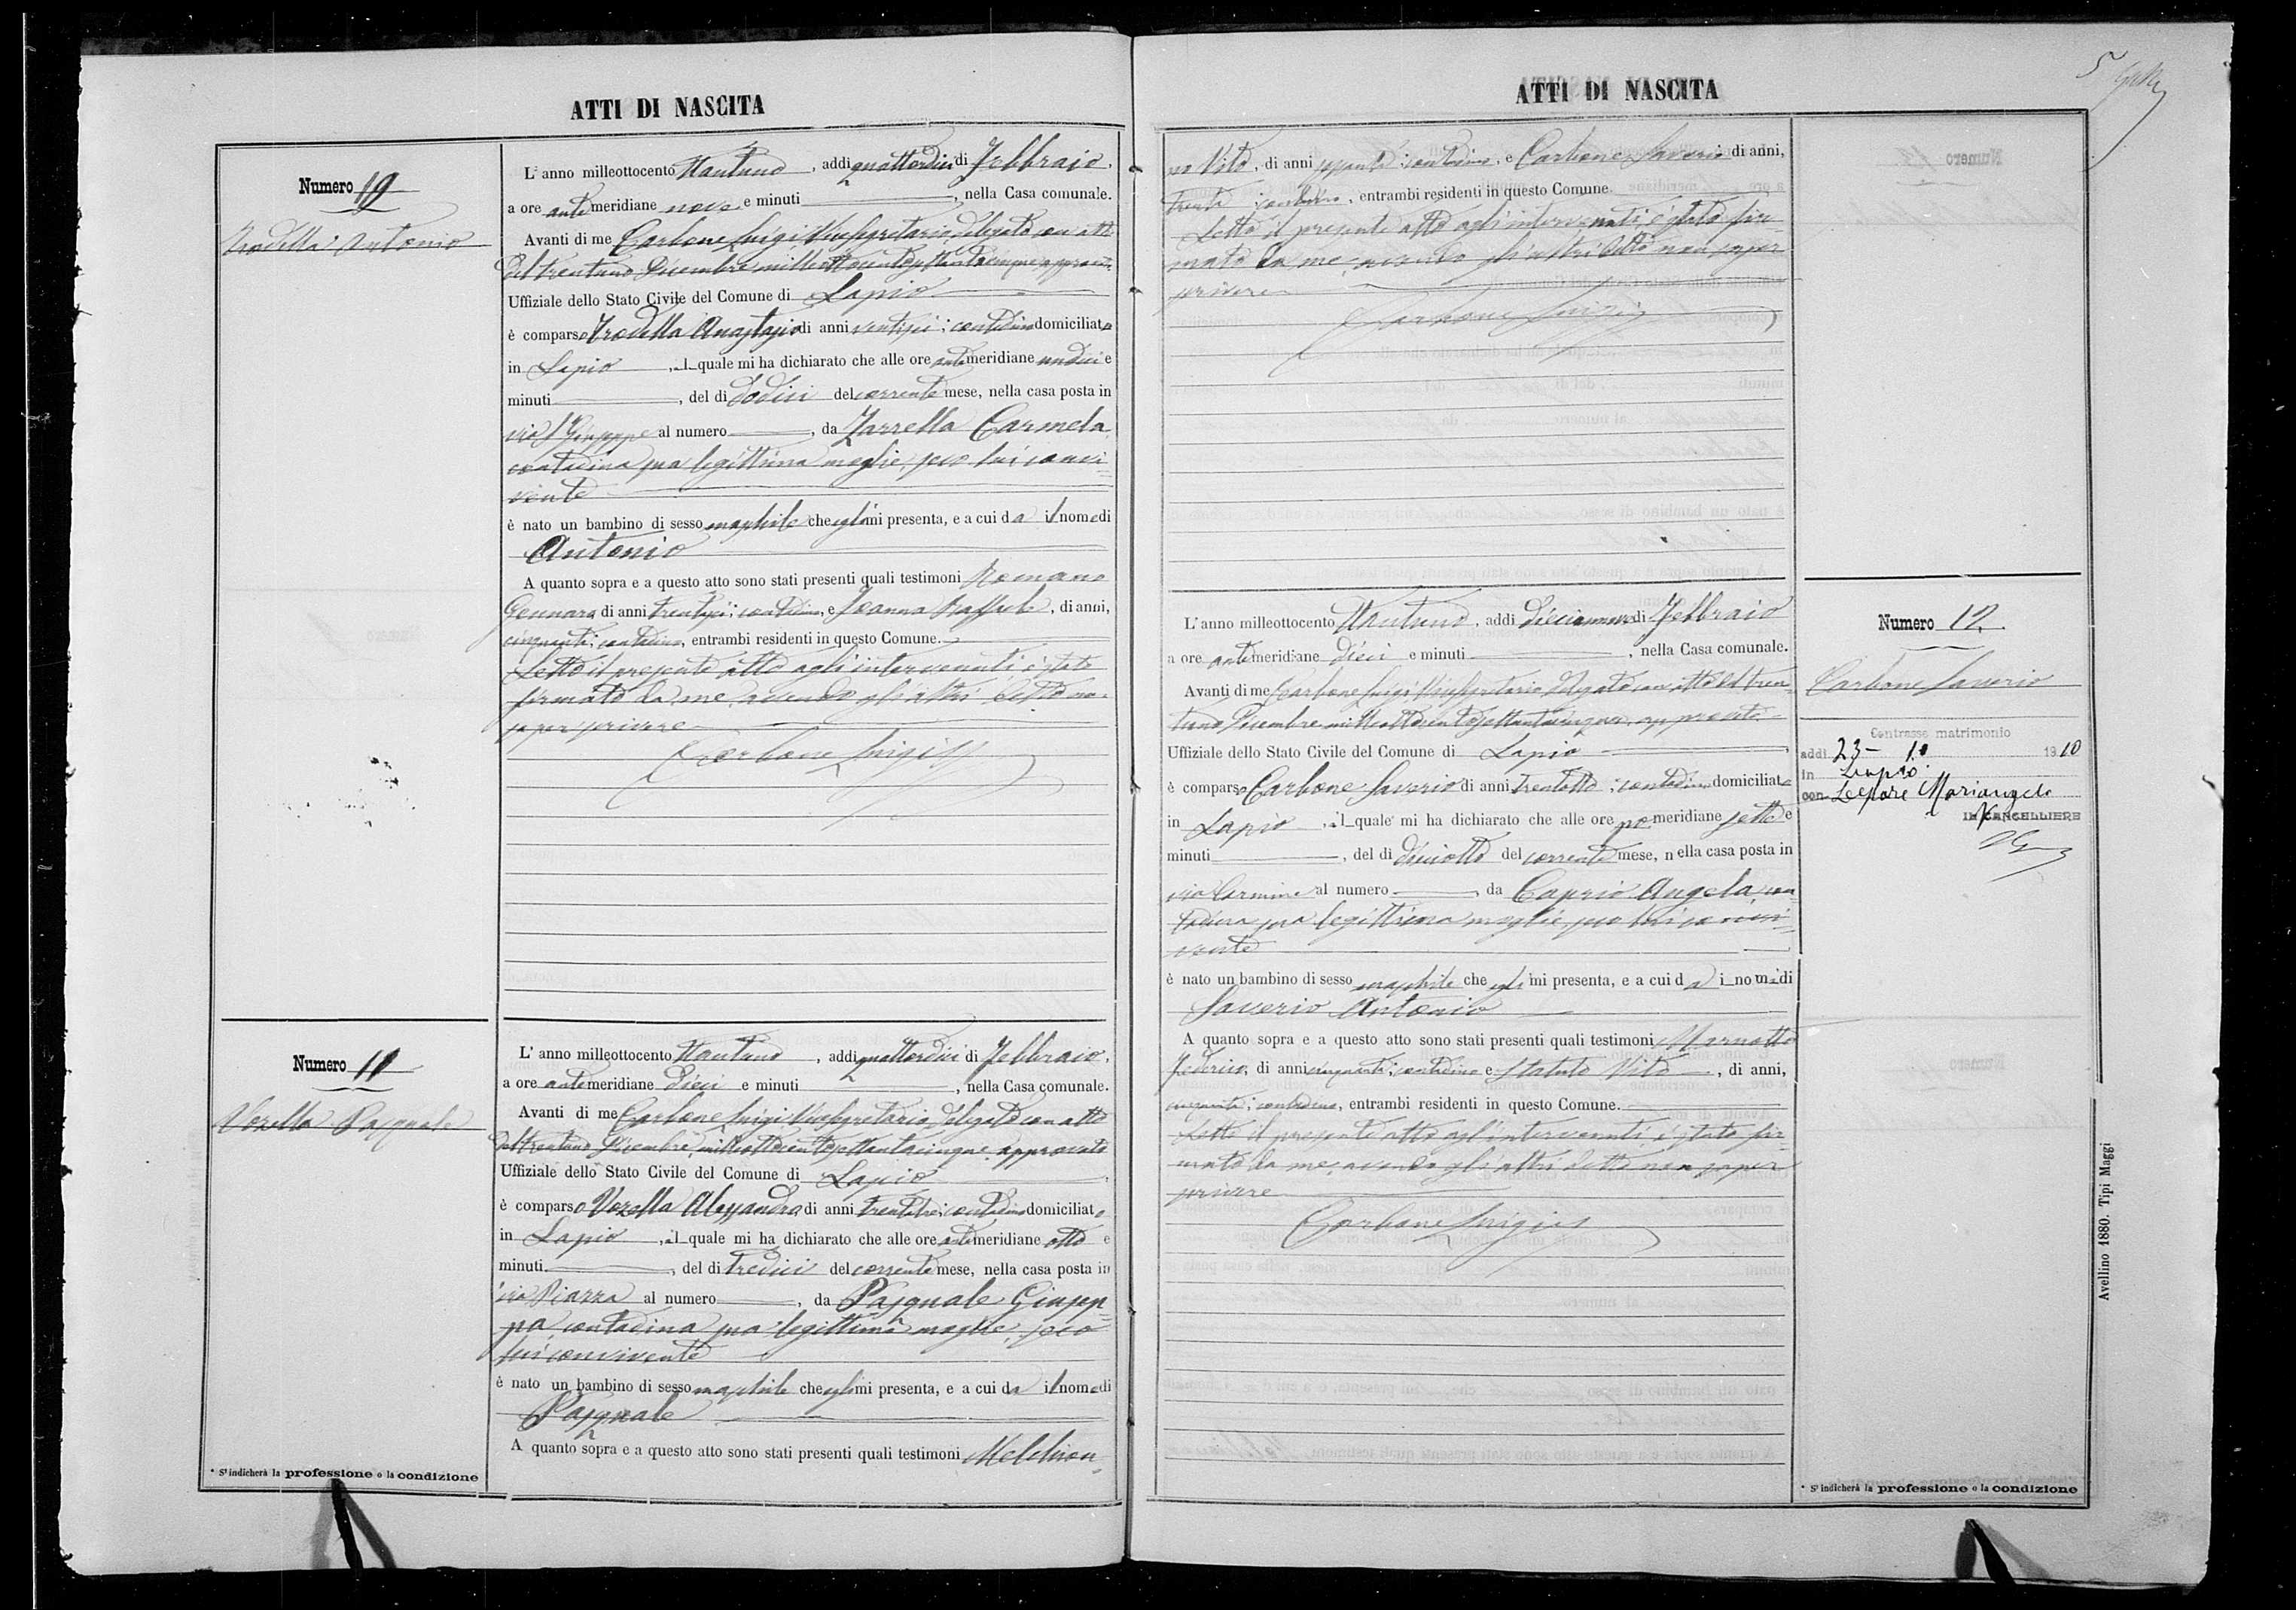 ATTI DI NASCITA
Numero 10
Trodella Antonio
L'anno milleottocento ttantuno, addi quattordici di Febbraio,
a ore antimeridiane nove e minuti , nella Casa comunale.
Avanti di me Carbone Luigi Vicesegretario delegato con atto
del trentuno Dicembre milleottocentosettantacinque approvato
Uffiziale dello Stato Civile del Comune di Lapio
è comparso Trodella Anastasio di anni ventisei; contadino domiciliato
in Lapio, il quale mi ha dichiarato che alle ore antimeridiane undici e
minuti , del di dodici del corrente mese, nella casa posta in
via S. Giuseppe al numero , da Zarrella Carmela
contadina sua legittima moglie, seco lui convi-
vente
è nato un bambino di sesso maschile che egli mi presenta, e a cui da il nome di
Antonio
A quanto sopra e a questo atto sono stati presenti quali testimoni Romano
Gennaro di anni trentasei; contadino, e Joanna Raffaele, di anni,
cinquanta; contadino, entrambi residenti in questo Comune.
Letto il presente atto agli intervenuti, è stato
firmato da me, avendo gli altri detto non
saper scrivere
Carbone Luigi
Numero 11
Vozella Pasquale
L'anno milleottocento ttantuno, addi quattordici di Febbraio,
a ore antimeridiane dieci e minuti , nella Casa comunale.
Avanti di me Carbone Luigi Vicesegretario delegato con atto
del trentuno Dicembre milleottocentosettantacinque approvato
Uffiziale dello Stato Civile del Comune di Lapio
è comparso Vozella Alessandro, di anni trentatre; contadino domiciliato
in Lapio, il quale mi ha dichiarato che alle ore antimeridiane otto e
minuti , del di tredici del corrente mese, nella casa posta in
via Piazza al numero , da Pasquale Giusep-
pa contadina sua legittima moglie, seco
lui convivente
è nato un bambino di sesso maschile che egli mi presenta, e a cui da il nome di
Pasquale
A quanto sopra e a questo atto sono stati presenti quali testimoni Melchion-
* S'indicherà la professione o la condizione
ATTI DI NASCITA
5
no Vito, di anni sessanta; contadino, e Carbone Saverio di anni,
trenta contadino, entrambi residenti in questo Comune.
Letto il presente atto agli intervenuti è stato fir-
mato da me, avendo gli altri detto non saper
scrivere
Carbone Luigi
Numero 12
Carbone Saverio
Contrasse matrimonio
addi 23 - 10 1910
in Lapio
con Lepore Mariangela
IL CANCELLIERE
L'anno milleottocento ttantuno, addi diciannove di Febbraio
a ore antimeridiane dieci e minuti , nella Casa comunale.
Avanti di me Carbone Luigi Vicesegretario delegato con atto del tren-
tuno Dicembre milleottocentosettantacinque, approvato
Uffiziale dello Stato Civile del Comune di Lapio
è comparso Carbone Saverio di anni trentotto; contadino domiciliato
in Lapio, il quale mi ha dichiarato che alle ore pomeridiane sette e
minuti , del di diciotto del corrente mese, nella casa posta in
via Carmine al numero , da Caprio Angela, con-
tadina sua legittima moglie, seco lui convi-
vente
è nato un bambino di sesso maschile che egli mi presenta, e a cui da i nome di
Saverio Antonio
A quanto sopra e a questo atto sono stati presenti quali testimoni
Federico, di anni cinquanta; contadino e Statuto Vito, di anni,
cinquanta; contadino, entrambi residenti in questo Comune.
Letto il presente atto agl'intervenuti, è stato fir-
mato da me, avendo gli altri detto non saper
scrivere
Carbone Luigi
* S'indicherà la professione o la condizione
Avellino 1880. Tipi Maggi